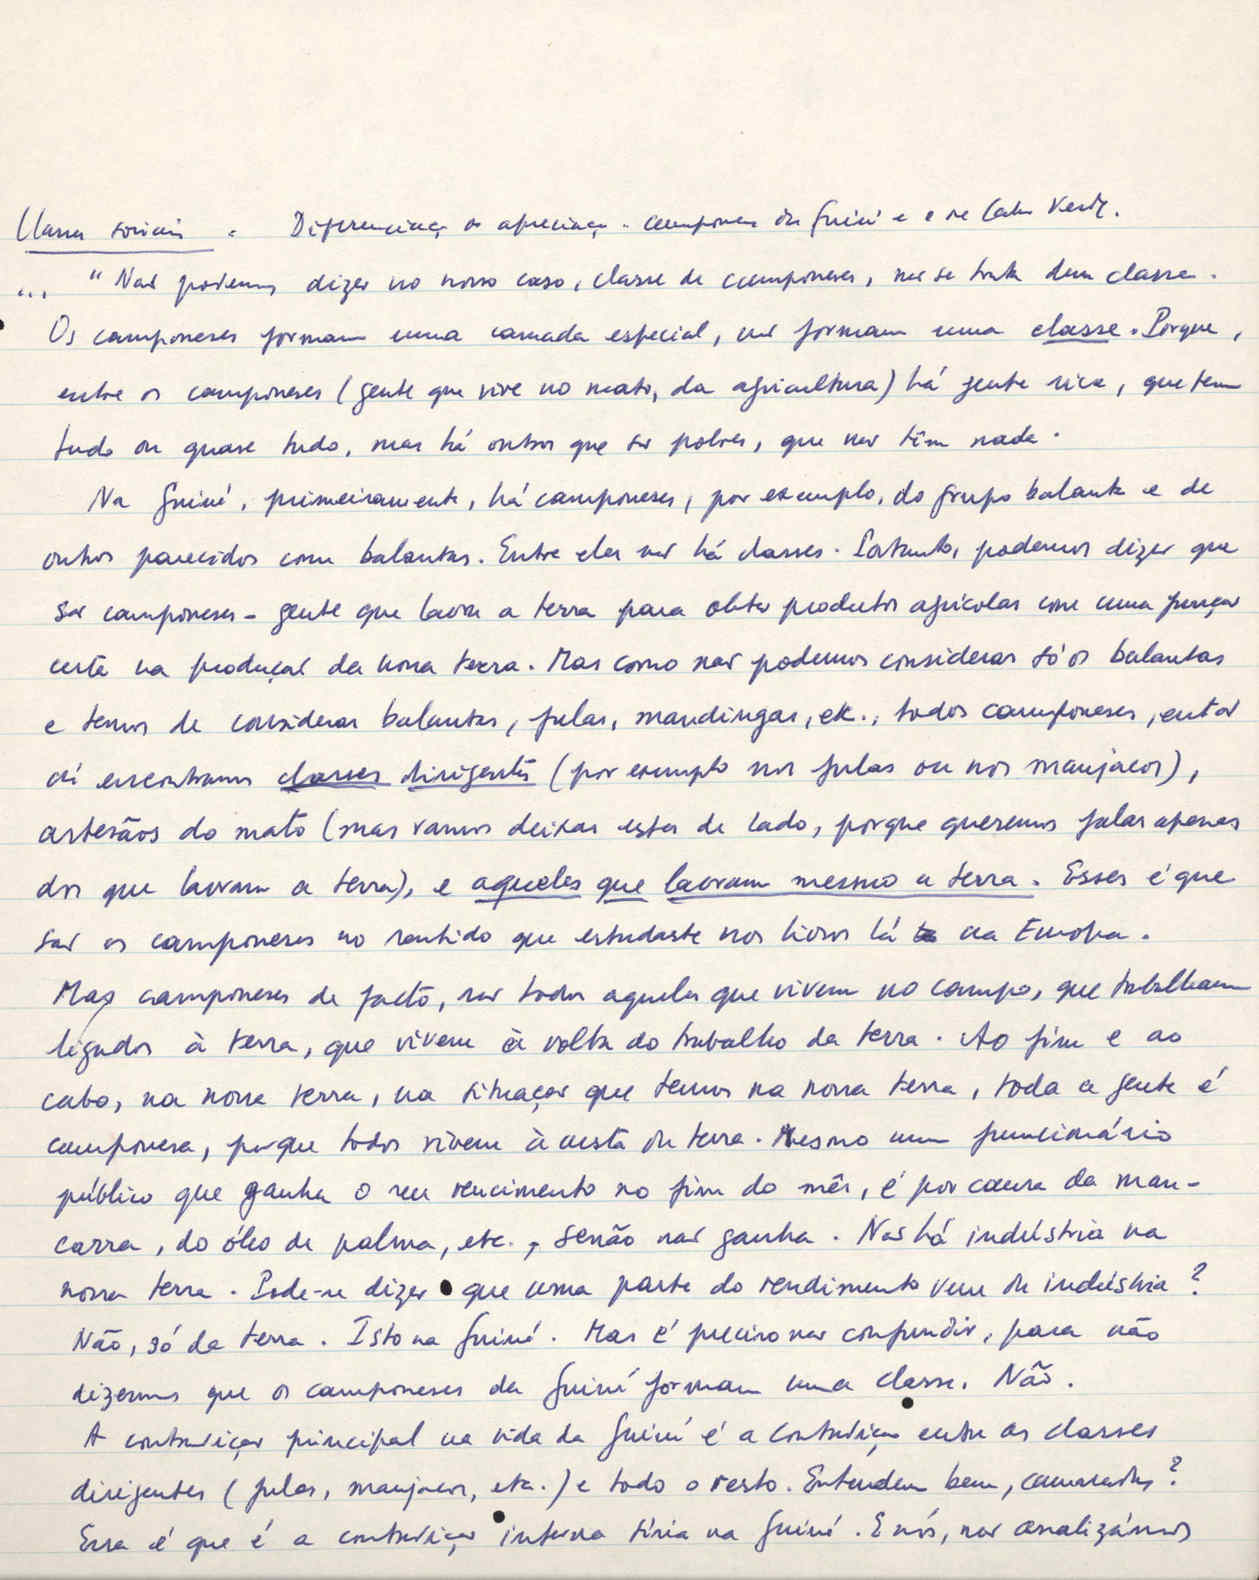 Classes sociais. Diferenciação de apreciaç. camponeses da Guiné e o de Cabo Verde.
... "Não podemos dizer no nosso caso, classe de camponeses, não se trata duma classe.
Os camponeses formam uma camada especial, não formam uma classe. Porque,
entre os camponeses (gente que vive no mato, da agricultura) há gente rica, que tem
tudo ou quase tudo, mas há outros que são pobres, que não têm nada.
Na Guiné, primeiramente, há camponeses, por exemplo, do grupo balanta e de
outros parecidos com balantas. Entre eles não há classes. Portanto, podemos dizer que
são camponeses - gente que lavra a terra para obter produtos agrícolas com uma função
certa na produção da nossa terra. Mas como não podemos considerar só os balantas
e temos de considerar balantas, fulas, mandingas, etc., todos camponeses, então
aí encontramos classes dirigentes (por exemplo nos fulas ou nos manjacos),
artesãos do mato (mas vamos deixar estes de lado, porque queremos falar apenas
dos que lavram a terra), e aqueles que lavram mesmo a terra. Esses é que
são os camponeses no sentido que estudaste nos livros lá na Europa.
Mas camponeses de facto, são todos aqueles que vivem no campo, que trabalham
ligados à terra, que vivem à volta do trabalho da terra. Ao fim e ao
cabo, na nossa terra, na situação que temos na nossa terra, toda a gente é
camponesa, porque todos vivem à custa da terra. Mesmo um funcionário
público que ganha o seu vencimento no fim do mês, é por causa da man-
carra, do óleo de palma, etc., senão não ganha. Não há indústria na
nossa terra. Pode-se dizer que uma parte do rendimento vem da indústria?
Não, só da terra. Isto na Guiné. Mas é preciso não confundir, para não
dizermos que os camponeses da Guiné formam uma classe. Não.
A contradição principal na vida da Guiné é a contradição entre as classes
dirigentes (fulas, manjacos, etc.) e todo o resto. Entendem bem, camaradas?
Essa é que é a contradição interna séria na Guiné. E nós, não analizámos